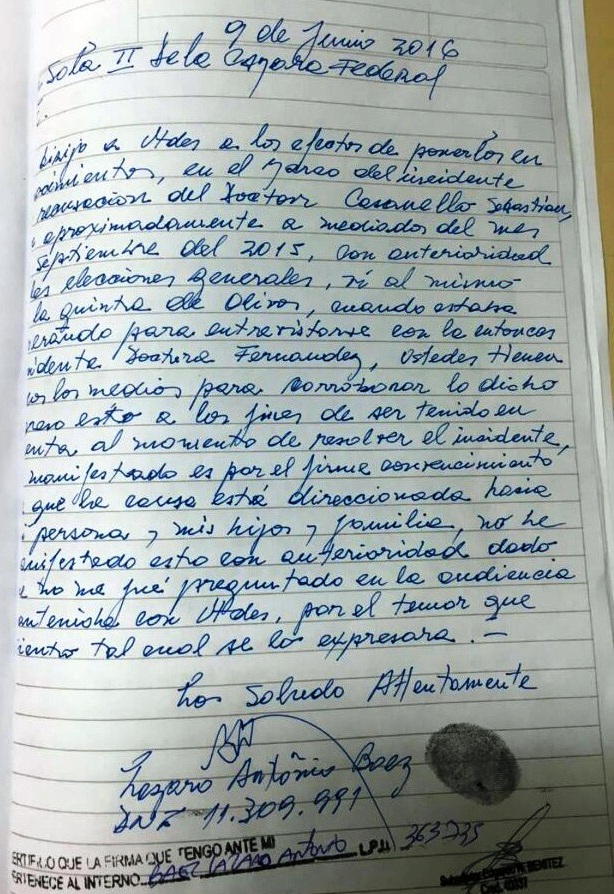 9 de Junio 2016
Sala II De la Camara Federal
Dirijo a Utdes a los efectos de ponerlos en
ocimientos, en el marco del incidente
recusación del Doctor Casanello Sebastian,
aproximadamente a mediados del mes
Septiembre del 2015, con anterioridad
las elecciones generales, vi al mismo
la quinta de Olivos, cuando estaba
erando para entrevistarse con la entonces
sidenta Doctora Fernandez, Ustedes tienen
os los medios para corroborar lo dicho
reso esto a los fines de ser tenido en
enta al momento de resolver el incidente,
manifestado es por el firme convencimiento
que la causa está direccionada hacia
persona y mis hijos y familia, no he
anifestado esto con anterioridad dado
e no me fué preguntado en la audiencia
antenida con Utdes, por el temor que
iento tal cual se lo expresara. –
Los Saludo Attentamente
Lazaro Antônio Baez
DNI 11.309.991
ERTIFICO QUE LA FIRMA QUE TENGO ANTE MI
ERTENECE AL INTERNO BAEZ LAZARO Antonio L.P.U. 363735
BENITEZ